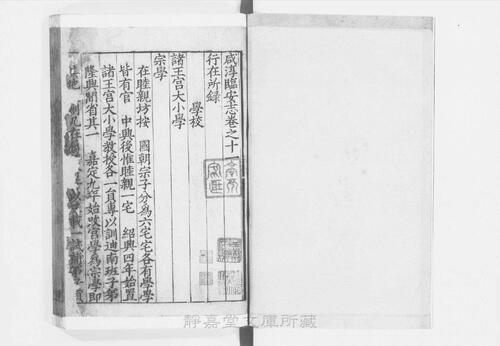 咸淳臨安志卷之十一
行在所錄
學校
諸王宫大小學
宗學
在睦親坊按 國朝宗子分為六宅宅各有學學
皆有官 中興後惟睦親一宅 紹興四年始置
諸王宫大小學教授各一員專以訓迪南班子弟
隆興閒省其一 嘉定九年始改宫學為宗學即
靜嘉堂文庫所藏